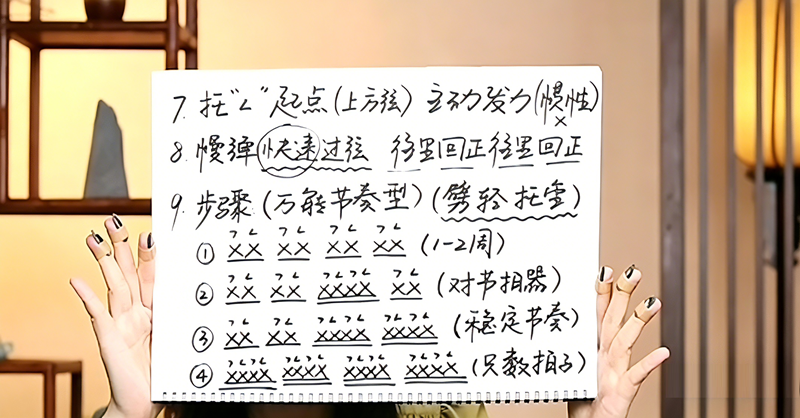 7. 托“ㄥ”起点(上方弦) 主动发力(惯性)
×
8. 慢弹快速过弦 往里回正往里回正
9. 步骤(万能节奏型)(劈轻托重)
① XX XX XX XX (1-2周)
② XX XX XXXX XX (对节拍器)
③ XX XX XXXX XXXX (稳定节奏)
④ XXXX XXXX XXXX XXXX (只数拍子)